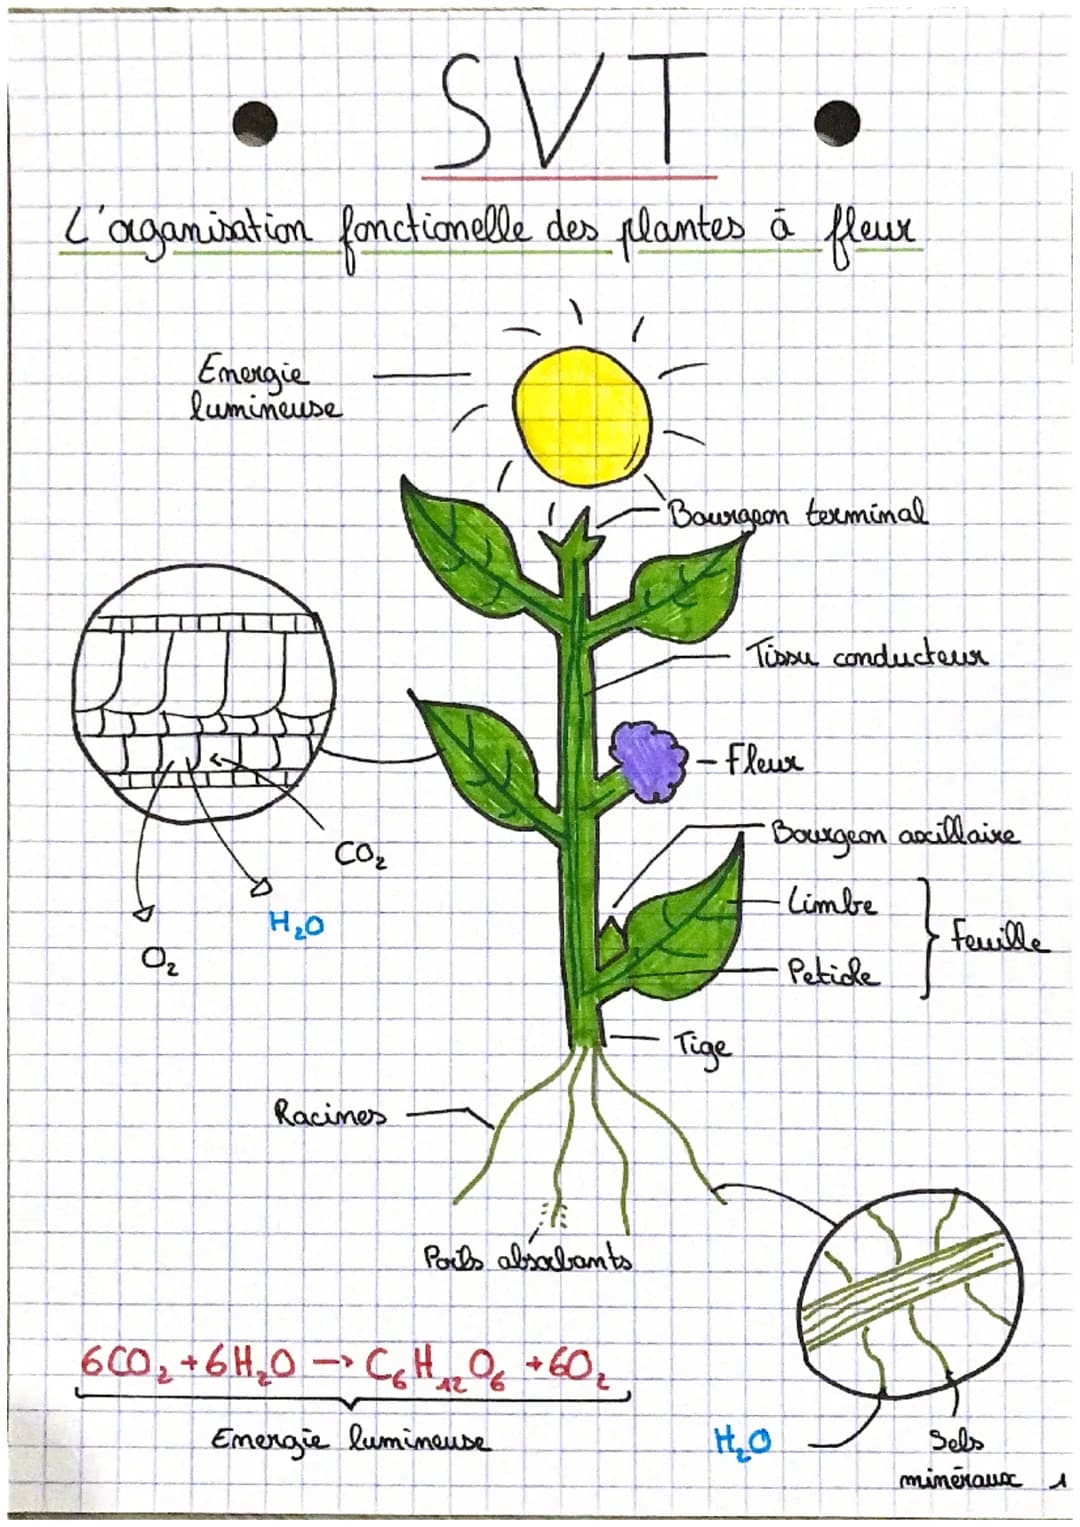 SVT
L'organisation fonctionelle des plantes à fleur
Energie
lumineuse
Bourgeon terminal
Tissu conducteur
Fleur
Bourgeon axillaire
CO₂
Limbe
H₂O
Feuille
O₂
Petiole
Tige
Racines
Poils absorbants
6CO₂ + 6H₂O → C₆H₁₂O₆ + 6O₂
Energie lumineuse
H₂O
Sels
minéraux
1